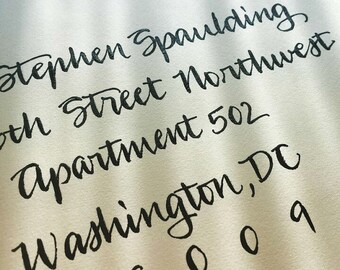 Stephen Spaulding
th Street Northwest
Apartment 502
Washington, DC
0 0 9